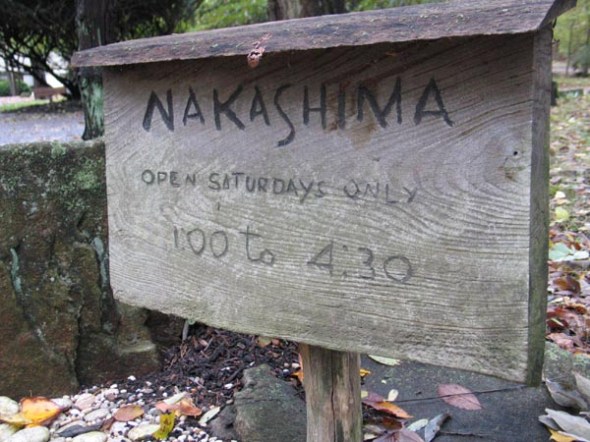 NAKASHIMA
OPEN SATURDAYS ONLY
1:00 to 4:30